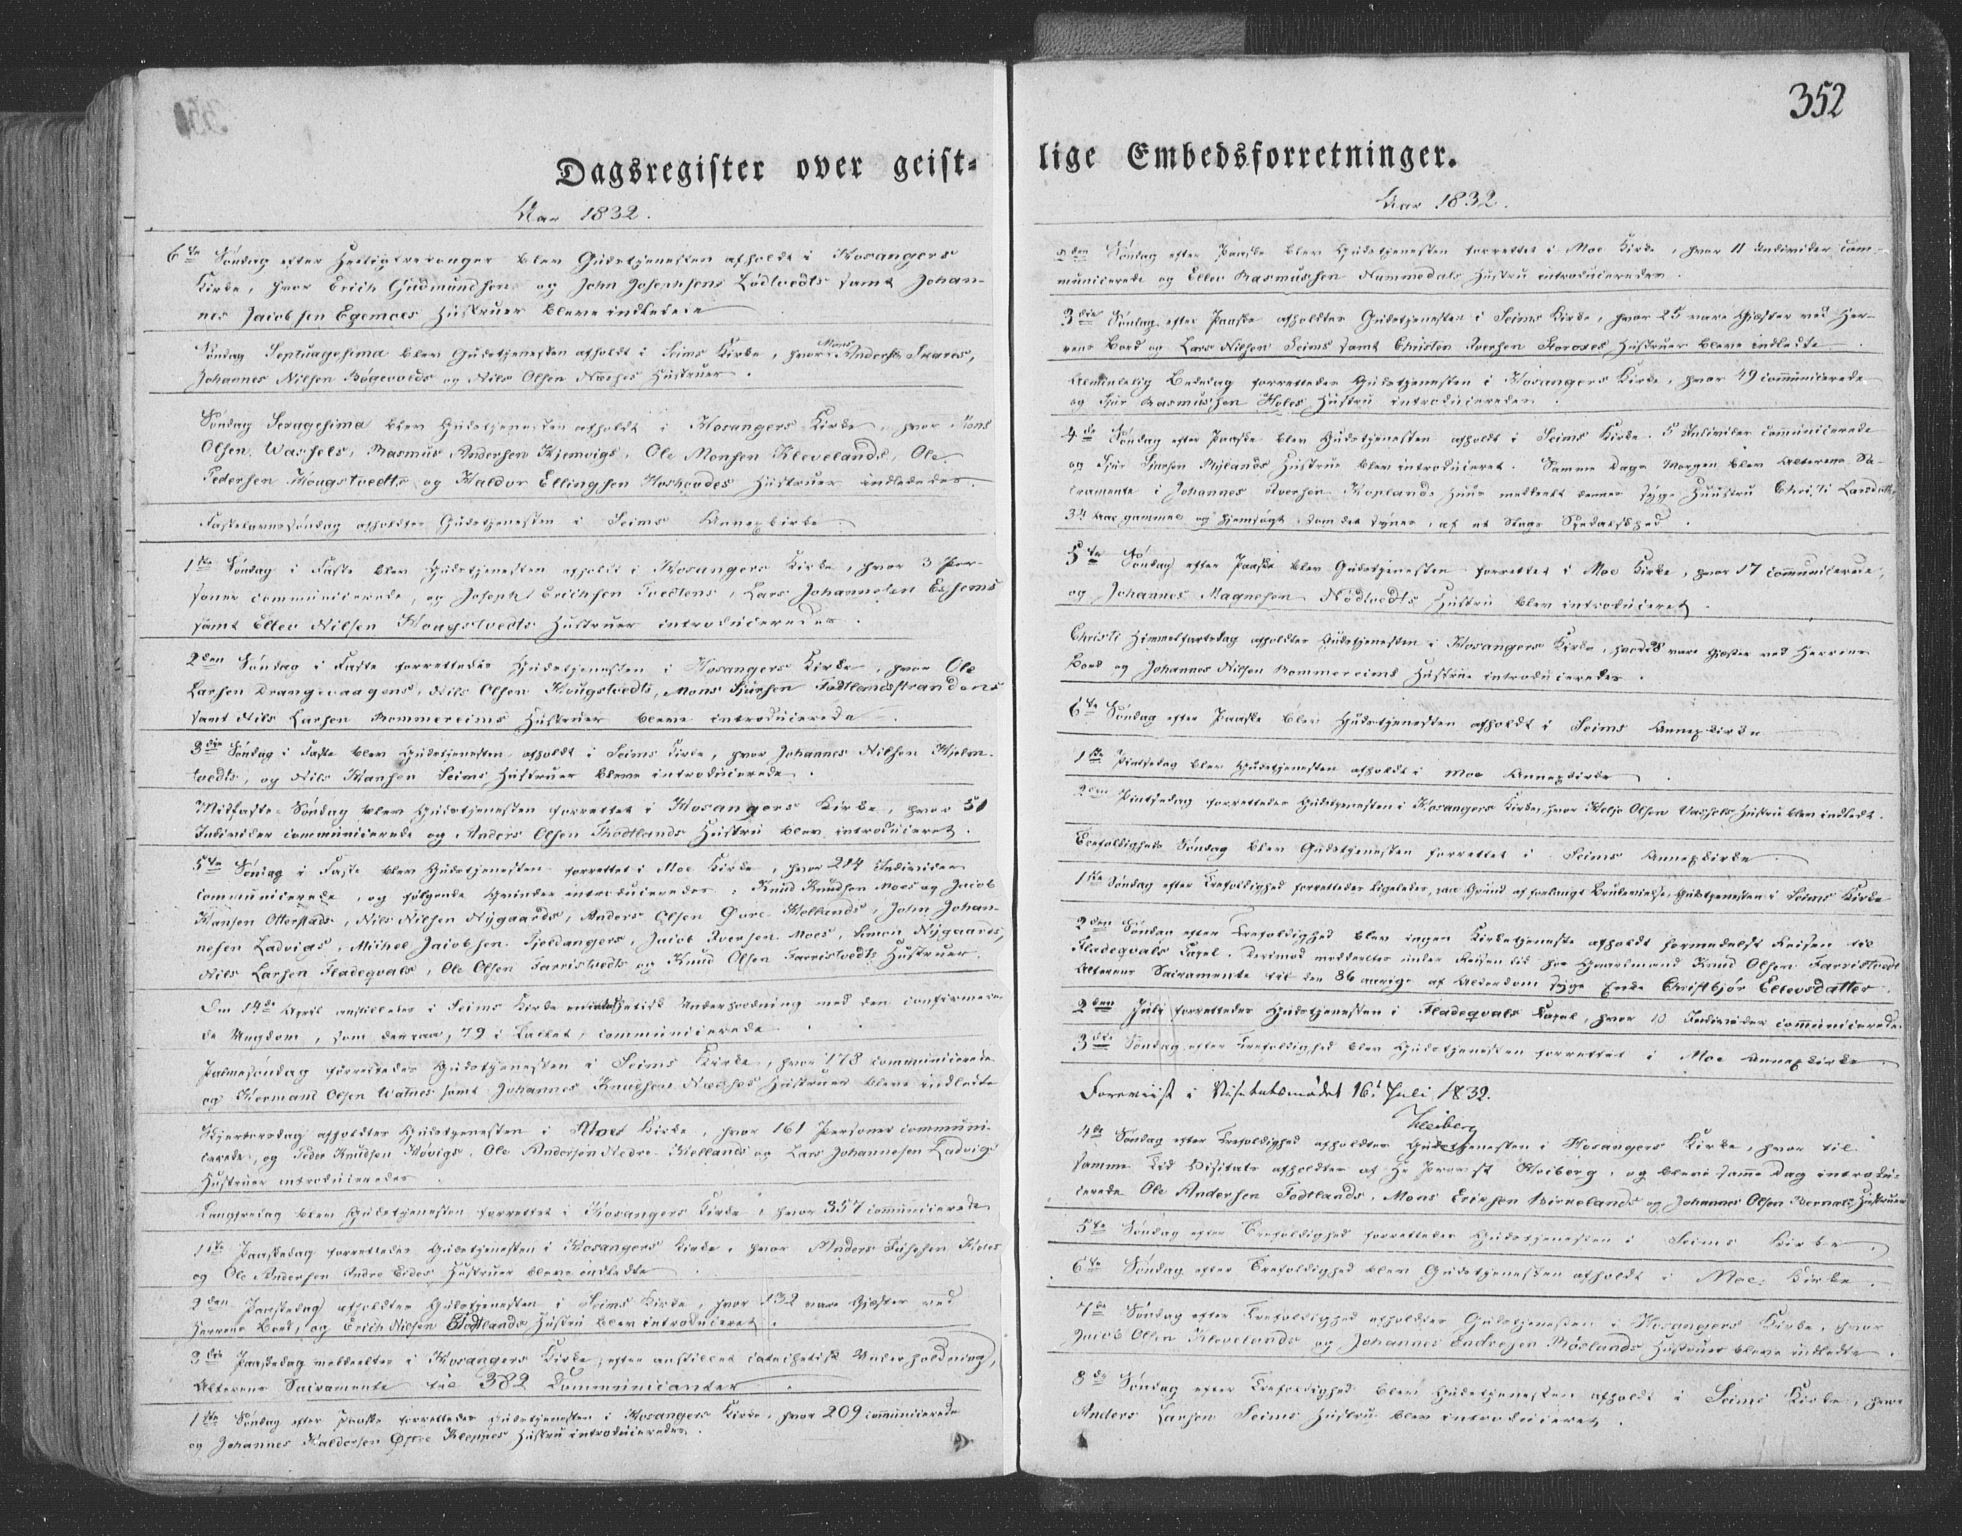 352
Dagsregister over geist-
Aar 1832.
6te Søndag efter Helligtrekonger blev Gudstjenesten afholdt i Hosangers
Kirke, hvor Erich Gudmundsens og John Josephsens Lødtvedts samt Johan-
nes Jacobsen Egemoes Hustruer bleve indledede
Søndag Septuagesima blev Gudstjenesten afholdt i Seims Kirke, hvor Mons Anders
Johannes Nilsen Bøgevolds og Nils Olsen Næsses Hustruer.
Søndag Sexagesima blev Gudstjenesten afholdt i Hosangers Kirke, hvor Mons
Olsen Wassels, Rasmus Andersen Hjemvigs, Ole Monsen Klevelands, Ole
Pedersen Hougstvedts og Haldor Ellingsen Hoshovdes Hustruer indlededes.
Fastelavnssøndag afholdtes Gudstjenesten i Seims Annexkirke
1ste Søndag i Faste blev Gudstjenesten afholdt i Hosangers Kirke, hvor 3 Per-
soner communicerede, og Joseph Erichsen Tvedtens, Lars Johannesen
samt Ellev Nilsen Hougstvedts Hustruer introduceredes.
2den Søndag i Faste forrettedes Gudstjenesten i Hosangers Kirke, hvor Ole
Larsen Drangevaagens, Nils Olsen Hougstvedts, Mons Sjursen Fodtlandsstrandens
samt Nils Larsen Rommereims Hustruer bleve introducerede.
3die Søndag i Faste blev Gudstjenesten afholdt i Seims Kirke, hvor Johannes Nilsen Hjelm-
tvedts, og Nils Hansen Seims Hustruer bleve introducerede.
Midfaste-Søndag blev Gudstjenesten forrettet i Hosangers Kirke, hvor 51
Individer communicerede og Anders Olsen Fodtlands Hustru blev introduceret.
5te Søndag i Faste blev Gudstjenesten forrettet i Moe Kirke, hvor 214 Individer
communicerede, og følgende Qvinder introduceredes: Knud Knudsen Moes og Jacob
Hansen Otterstads, Nils Nilsen Nygaards, Anders Olsen Øvre Hellands, John Johan-
nesen Ladvigs, Michel Jacobsen Fjeldangers, Jacob Iversen Moes, Simon Nygaards,
Nils Larsen Fladeqvals, Ole Olsen Farristvedts og Knud Olsen Farristvedts Hustruer.
Den 14de April anstilledes i Seims Kirke en catechetisk Underholdning med den confirmere-
de Ungdom, som deraa, 79 i Tallet, communicerede.
Palmesøndag forrettedes Gudstjenesten i Seims Kirke, hvor 178 communicerede
og Hermand Olsen Watnes samt Johannes Knudsen Næsses Hustruer bleve indledte
Skjertorsdag afholdtes Gudstjenesten i Moes Kirke, hvor 161 Personer communi-
cerede, og Peder Knudsen Høvigs, Ole Andersen Nedre-Hellands og Lars Johannesen Ladvigs
Hustruer introduceredes.
Langfredag blev Gudstjenesten forrettet i Hosangers Kirke, hvor 357 communicerede
1ste Paaskedag forrettedes Gudstjenesten i Hosangers Kirke, hvor Anders
og Ole Andersen Indre Eides Hustruer bleve indledte
2den Paaskedag afholdtes Gudstjenesten i Seims Kirke, hvor 132 vare Gjæster ved
Herrens Bord, og Erich Nilsen Fodtlands Hustru blev introduceret.
3die Paaskedag meddeeltes i Hosangers Kirke, efter anstillet catechetisk Underholdning,
Alterens Sacramente til 382 Communicanter.
1ste Søndag efter Paaske forrettedes Gudstjenesten i Hosangers Kirke, hvor 209 communicerede
og Johannes Haldorsen Øvre Kleppes Hustru introduceredes.
lige Embedsforretninger.
Aar 1832.
2den Søndag efter Paaske blev Gudstjenesten forrettet i Moe Kirke, hvor 11 Individer com-
municerede og Ellev Rasmussen Nummedals Hustru introduceredes.
3die Søndag efter Paaske afholdtes Gudstjenesten i Seims Kirke, hvor 25 vare Gjæster ved Her-
rens Bord og Lars Nilsen Seims samt Christen Iversen Hustruer bleve indledte
Almindelig Bededag forrettedes Gudstjenesten i Hosangers Kirke, hvor 49 communicerede
og Sjur Rasmussen Holes Hustru introduceredes.
4de Søndag efter Paaske blev Gudstjenesten afholdt i Seims Kirke. 5 Individer communicerede
og Sjur Sjursen Mylands Hustrue blev introduceret. Samme Dags Morgen blev Alterens Sa-
cramente i Johannes Iversen Hoplands Huus meddeelt dennes syge Huustru Christi Larsdatter
34 Aar gammel og hjemsøgt, som det synes, af et Slags Spedalskhed.
5te Søndag efter Paaske blev Gudstjenesten forrettet i Moe Kirke, hvor 17 communicerede,
og Johannes Magnesen Nødtvedts Hustru blev introduceret.
Christi Himmelfartsdag afholdtes Gudstjenesten i Hosangers Kirke, hvor vare Gjæster ved Herrens
Bord og Johannes Nilsen Rommereims Hustrue introduceredes.
6te Søndag efter Paaske blev Gudstjenesten afholdt i Seims Annexkirke
1ste Pintsedag blev Gudstjenesten afholdt i Moe Annexkirke.
2den Pintsedag forrettedes Gudstjenesten i Hosangers Kirke, hvor Helje Olsen Vassels Hustru blev indledt.
Trefoldigheds Søndag blev Gudstjenesten forrettet i Seims Annexkirke
1ste Søndag efter Trefoldighed forrettedes ligeledes, paa Grund af forlangt Brudevielse, Gudstjenesten i Seims Kirke
2den Søndag efter Trefoldighed blev ingen Kirketjeneste afholdt formedelst Reisen til
Fladeqvals Capel. Derimod meddeeltes under Reisen hid hos Qvaarlmand Knud Olsen Farristvedt
Alterens Sacramente til den 86 aarige af Alderdom syge Enke Christbjør Ellevsdatter.
2den Juli forrettedes Gudstjenesten i Fladeqvals Capel, hvor 10 Individer communicerede.
3die Søndag efter Trefoldighed blev Gudstjenesten forrettet i Moe Annexkirke
Foreviist i Visitatsmødet 16d Juli 1832.
Kleiberg
4de Søndag efter Trefoldighed afholdtes Gudstjenesten i Hosangers Kirke, hvor til
samme Tid Visitats afholdtes af Hr Provst Kleiberg, og bleve samme Dag introdu-
cerede Ole Andersen Fodtlands, Mons Ericsen Birkelands og Johannes Olsen Bernæs Hustruer
5te Søndag efter Trefoldighed forrettedes Gudstjenesten i Seims Kirke.
6te Søndag efter Trefoldighed blev Gudstjenesten afholdt i Moe Kirke.
7de Søndag efter Trefoldighed afholdtes Gudstjenesten i Hosangers Kirke, hvor
Jacob Olsen Klevelands og Johannes Endresen Røslands Hustruer bleve indledte.
8de Søndag efter Trefoldighed blev Gudstjenesten afholdt i Seims Kirke, hvor
Anders Larsen Seims Hustru blev introduceret.